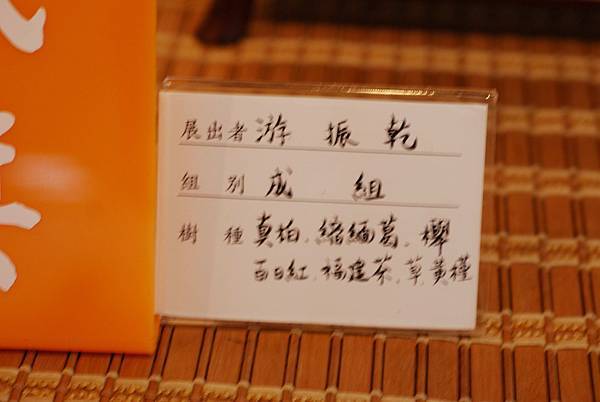 展出者 游振乾
組別 成組
樹種 真柏、縮緬葛、櫸
百日紅、福建茶、草黃槿